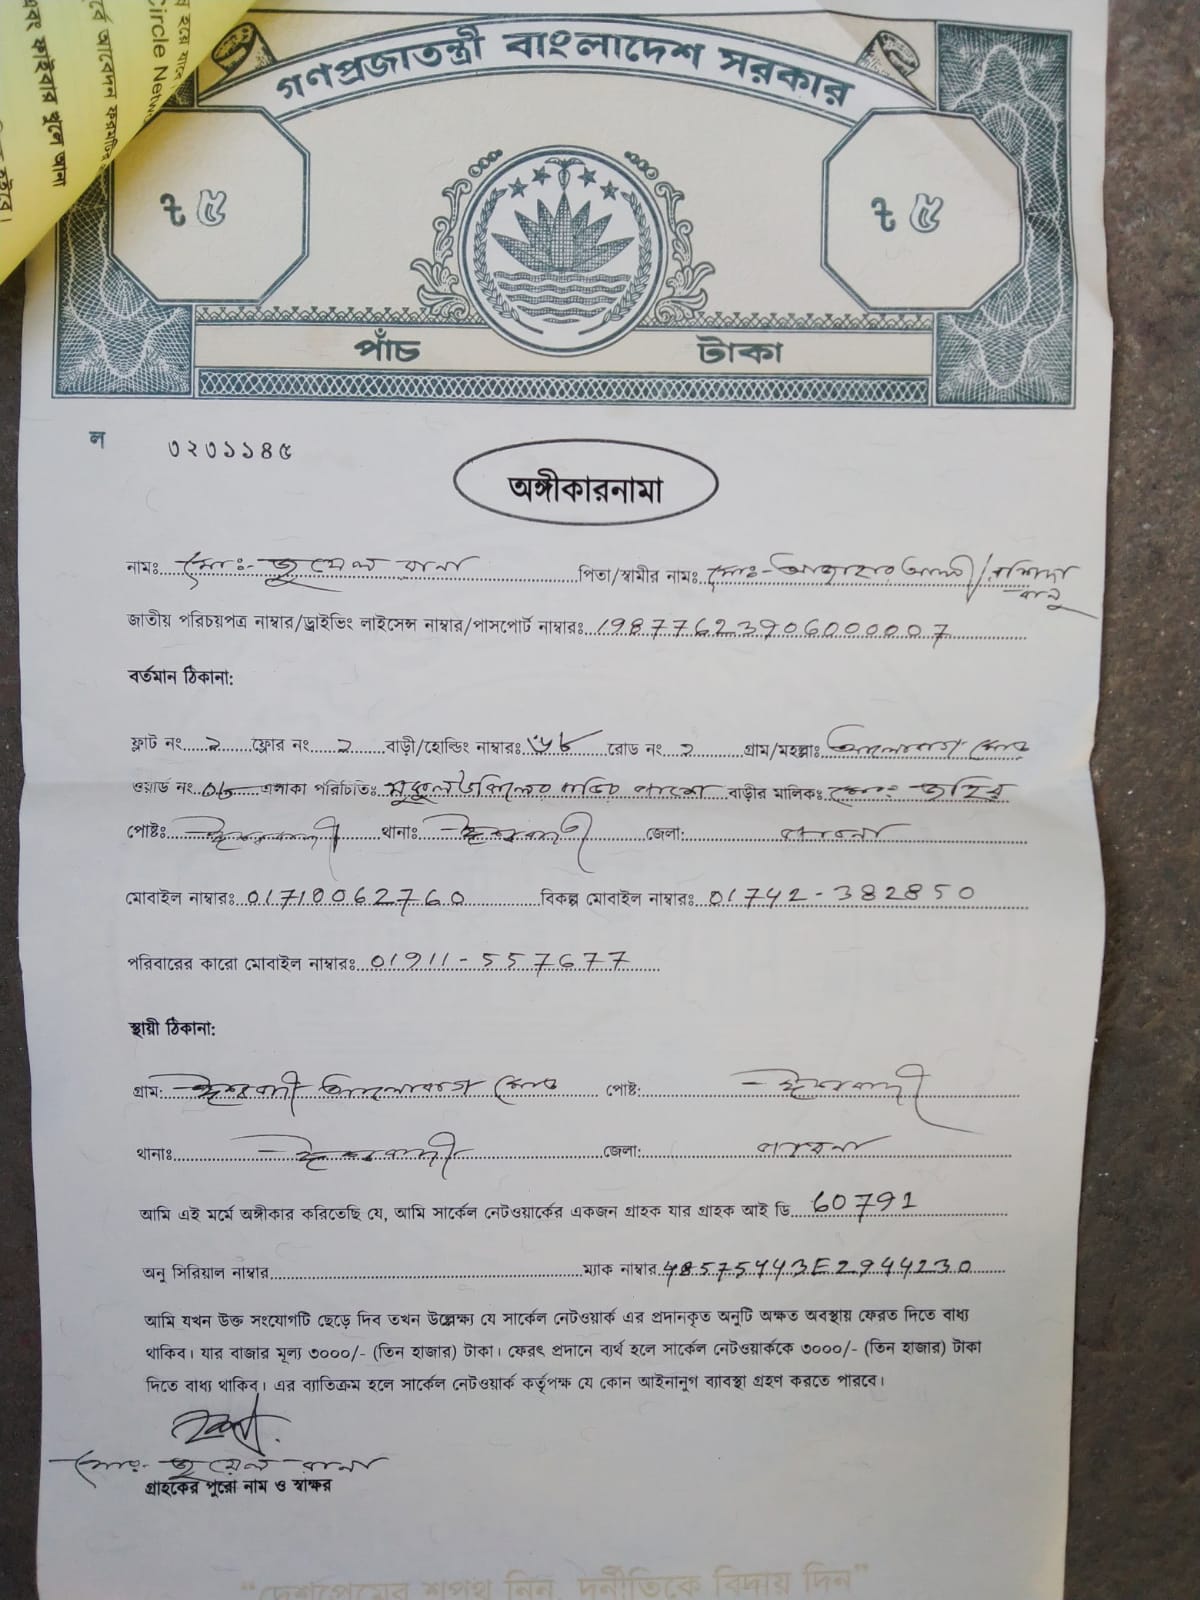 গণপ্রজাতন্ত্রী বাংলাদেশ সরকার
৳ ৫ ৳ ৫
পাঁচ টাকা
ল ৩২৩১১৪৫
অঙ্গীকারনামা
নামঃ মোঃ- জুয়েল রানা পিতা/স্বামীর নামঃ মোঃ- আজাহার আলী/রাশিদা বানু
জাতীয় পরিচয়পত্র নাম্বার/ড্রাইভিং লাইসেন্স নাম্বার/পাসপোর্ট নাম্বারঃ 19877623906000007
বর্তমান ঠিকানা:
ফ্লাট নং ২ ফ্লোর নং ২ বাড়ী/হোল্ডিং নাম্বারঃ রোড নং ২ গ্রাম/মহল্লাঃ
ওয়ার্ড নং এলাকা পরিচিতিঃ বাড়ীর মালিকঃ মোঃ জহির
পোষ্টঃ ঈশ্বরদী থানাঃ ঈশ্বরদী জেলা: পাবনা
মোবাইল নাম্বারঃ 01710062760 বিকল্প মোবাইল নাম্বারঃ 01742-382850
পরিবারের কারো মোবাইল নাম্বারঃ 01911-557677
স্থায়ী ঠিকানা:
গ্রাম: ঈশ্বরদী পোষ্ট: ঈশ্বরদী
থানাঃ ঈশ্বরদী জেলা: পাবনা
আমি এই মর্মে অঙ্গীকার করিতেছি যে, আমি সার্কেল নেটওয়ার্কের একজন গ্রাহক যার গ্রাহক আই ডি 60791
অনু সিরিয়াল নাম্বার ম্যাক নাম্বার 48575443E2944230
আমি যখন উক্ত সংযোগটি ছেড়ে দিব তখন উল্লেক্ষ্য যে সার্কেল নেটওয়ার্ক এর প্রদানকৃত অনুটি অক্ষত অবস্থায় ফেরত দিতে বাধ্য
থাকিব। যার বাজার মূল্য ৩০০০/- (তিন হাজার) টাকা। ফেরৎ প্রদানে ব্যর্থ হলে সার্কেল নেটওয়ার্ককে ৩০০০/- (তিন হাজার) টাকা
দিতে বাধ্য থাকিব। এর ব্যাতিক্রম হলে সার্কেল নেটওয়ার্ক কর্তৃপক্ষ যে কোন আইনানুগ ব্যাবস্থা গ্রহণ করতে পারবে।
মোঃ- জুয়েল রানা
গ্রাহকের পুরো নাম ও স্বাক্ষর
“দেশপ্রেমের শপথ নিন, দুর্নীতিকে বিদায় দিন”